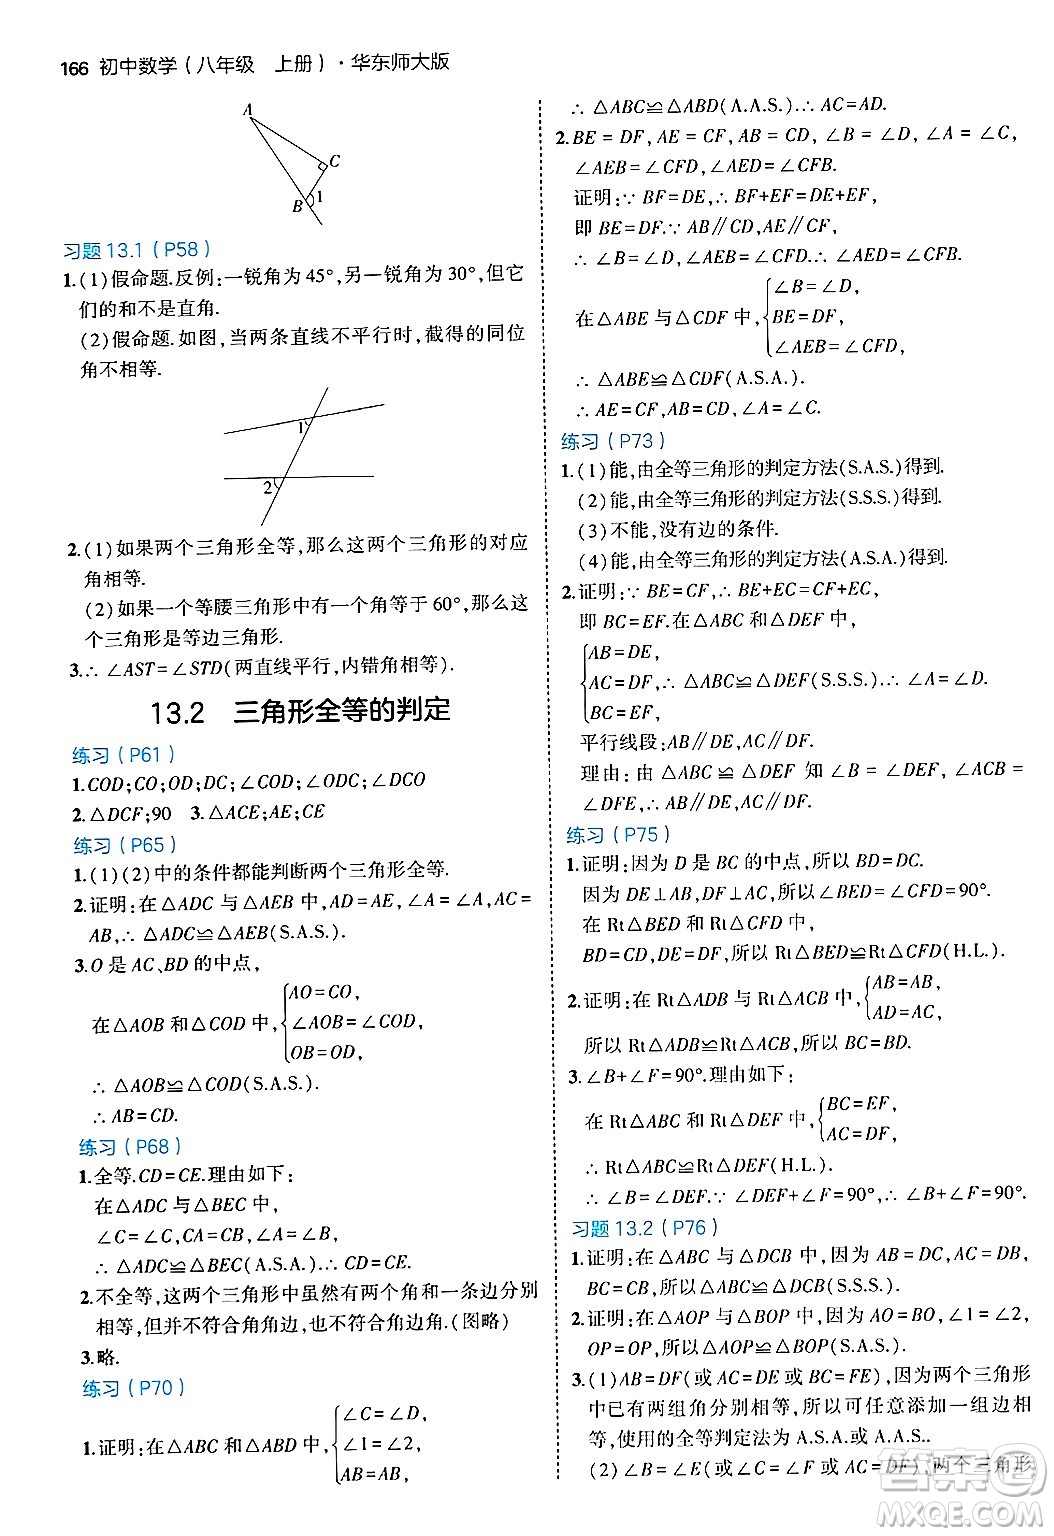 166 初中数学(八年级 上册)·华东师大版
A
C
B
1
习题13.1(P58)
1.(1)假命题.反例:一锐角为45°,另一锐角为30°,但它
们的和不是直角.
(2)假命题.如图,当两条直线不平行时,截得的同位
角不相等.
1
2
2.(1)如果两个三角形全等,那么这两个三角形的对应
角相等.
(2)如果一个等腰三角形中有一个角等于60°,那么这
个三角形是等边三角形.
3.∴∠AST=∠STD(两直线平行,内错角相等).
13.2 三角形全等的判定
练习(P61)
1.COD;CO;OD;DC;∠COD;∠ODC;∠DCO
2.△DCF;90 3.△ACE;AE;CE
练习(P65)
1.(1)(2)中的条件都能判断两个三角形全等.
2.证明:在△ADC与△AEB中,AD=AE,∠A=∠A,AC=
AB,∴△ADC≌△AEB(S.A.S.).
3.O是AC、BD的中点,
AO=CO,
在△AOB和△COD中,∠AOB=∠COD,
OB=OD,
∴△AOB≌△COD(S.A.S.).
∴AB=CD.
练习(P68)
1.全等.CD=CE.理由如下:
在△ADC与△BEC中,
∠C=∠C,CA=CB,∠A=∠B,
∴△ADC≌△BEC(A.S.A.).∴CD=CE.
2.不全等,这两个三角形中虽然有两个角和一条边分别
相等,但并不符合角角边,也不符合角边角.(图略)
3.略.
练习(P70)
∠C=∠D,
1.证明:在△ABC和△ABD中,∠1=∠2,
AB=AB,
∴△ABC≌△ABD(A.A.S.).∴AC=AD.
2.BE=DF,AE=CF,AB=CD,∠B=∠D,∠A=∠C,
∠AEB=∠CFD,∠AED=∠CFB.
证明:∵BF=DE,∴BF+EF=DE+EF,
即BE=DF.∵AB∥CD,AE∥CF,
∴∠B=∠D,∠AEB=∠CFD.∴∠AED=∠CFB.
∠B=∠D,
在△ABE与△CDF中,BE=DF,
∠AEB=∠CFD,
∴△ABE≌△CDF(A.S.A.).
∴AE=CF,AB=CD,∠A=∠C.
练习(P73)
1.(1)能,由全等三角形的判定方法(S.A.S.)得到.
(2)能,由全等三角形的判定方法(S.S.S.)得到.
(3)不能,没有边的条件.
(4)能,由全等三角形的判定方法(A.S.A.)得到.
2.证明:∵BE=CF,∴BE+EC=CF+EC,
即BC=EF.在△ABC和△DEF中,
AB=DE,
AC=DF,∴△ABC≌△DEF(S.S.S.).∴∠A=∠D.
BC=EF,
平行线段:AB∥DE,AC∥DF.
理由:由△ABC≌△DEF知∠B=∠DEF,∠ACB=
∠DFE,∴AB∥DE,AC∥DF.
练习(P75)
1.证明:因为D是BC的中点,所以BD=DC.
因为DE⊥AB,DF⊥AC,所以∠BED=∠CFD=90°.
在Rt△BED和Rt△CFD中,
BD=CD,DE=DF,所以Rt△BED≌Rt△CFD(H.L.).
AB=AB,
2.证明:在Rt△ADB与Rt△ACB中,
AD=AC,
所以Rt△ADB≌Rt△ACB,所以BC=BD.
3.∠B+∠F=90°.理由如下:
BC=EF,
在Rt△ABC和Rt△DEF中,
AC=DF,
∴Rt△ABC≌Rt△DEF(H.L.).
∴∠B=∠DEF.∵∠DEF+∠F=90°,∴∠B+∠F=90°.
习题13.2(P76)
1.证明:在△ABC与△DCB中,因为AB=DC,AC=DB,
BC=CB,所以△ABC≌△DCB(S.S.S.).
2.证明:在△AOP与△BOP中,因为AO=BO,∠1=∠2,
OP=OP,所以△AOP≌△BOP(S.A.S.).
3.(1)AB=DF(或AC=DE或BC=FE),因为两个三角形
中已有两组角分别相等,所以可任意添加一组边相
等,使用的全等判定法为A.S.A.或A.A.S..
(2)∠B=∠E(或AC=DF),两个三角形
答案
MXQE.COM